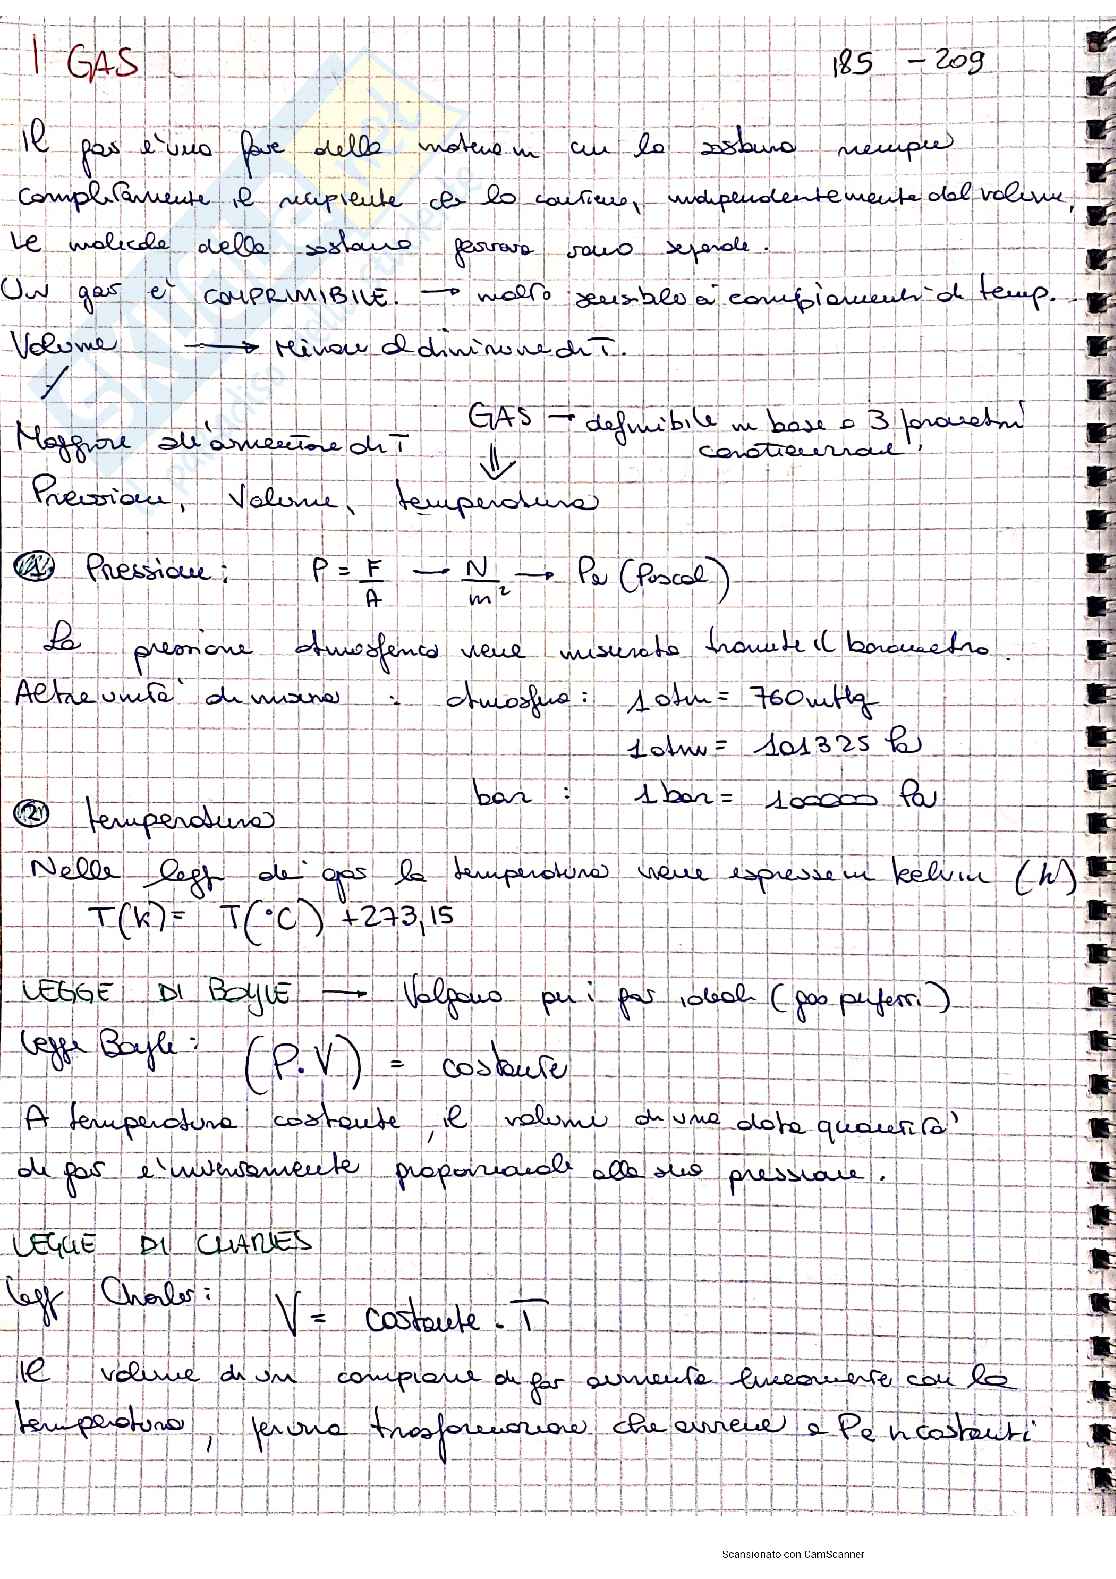 I GAS 185 - 209
Il gas è una fase della materia in cui la sostanza riempie
completamente il recipiente che lo contiene, indipendentemente dal volume,
le molecole della sostanza gassosa sono separate.
Un gas è COMPRIMIBILE. → molto sensibile ai cambiamenti di temp.
Volume → Minore al diminuire di T.
Maggiore all'aumentare di T
GAS → definibile in base a 3 parametri
caratteristici
Pressione, Volume, temperatura
① Pressione: P = F/A → N/m² → Pa (Pascal)
La pressione atmosferica viene misurata tramite il barometro.
Altre unità di misura : atmosfera: 1 atm = 760 mmHg
1 atm = 101325 Pa
bar : 1 bar = 100000 Pa
② temperatura
Nelle leggi dei gas la temperatura viene espressa in kelvin (K)
T(K) = T(°C) +273,15
LEGGE DI BOYLE → Valgono per i gas ideali (gas perfetti)
Legge Boyle: (P.V) = costante
A temperatura costante, il volume di una data quantità
di gas è inversamente proporzionale alla sua pressione.
LEGGE DI CHARLES
Legge Charles: V = costante . T
Il volume di un campione di gas aumenta linearmente con la
temperatura, per una trasformazione che avviene a P e n costanti
Scansionato con CamScanner